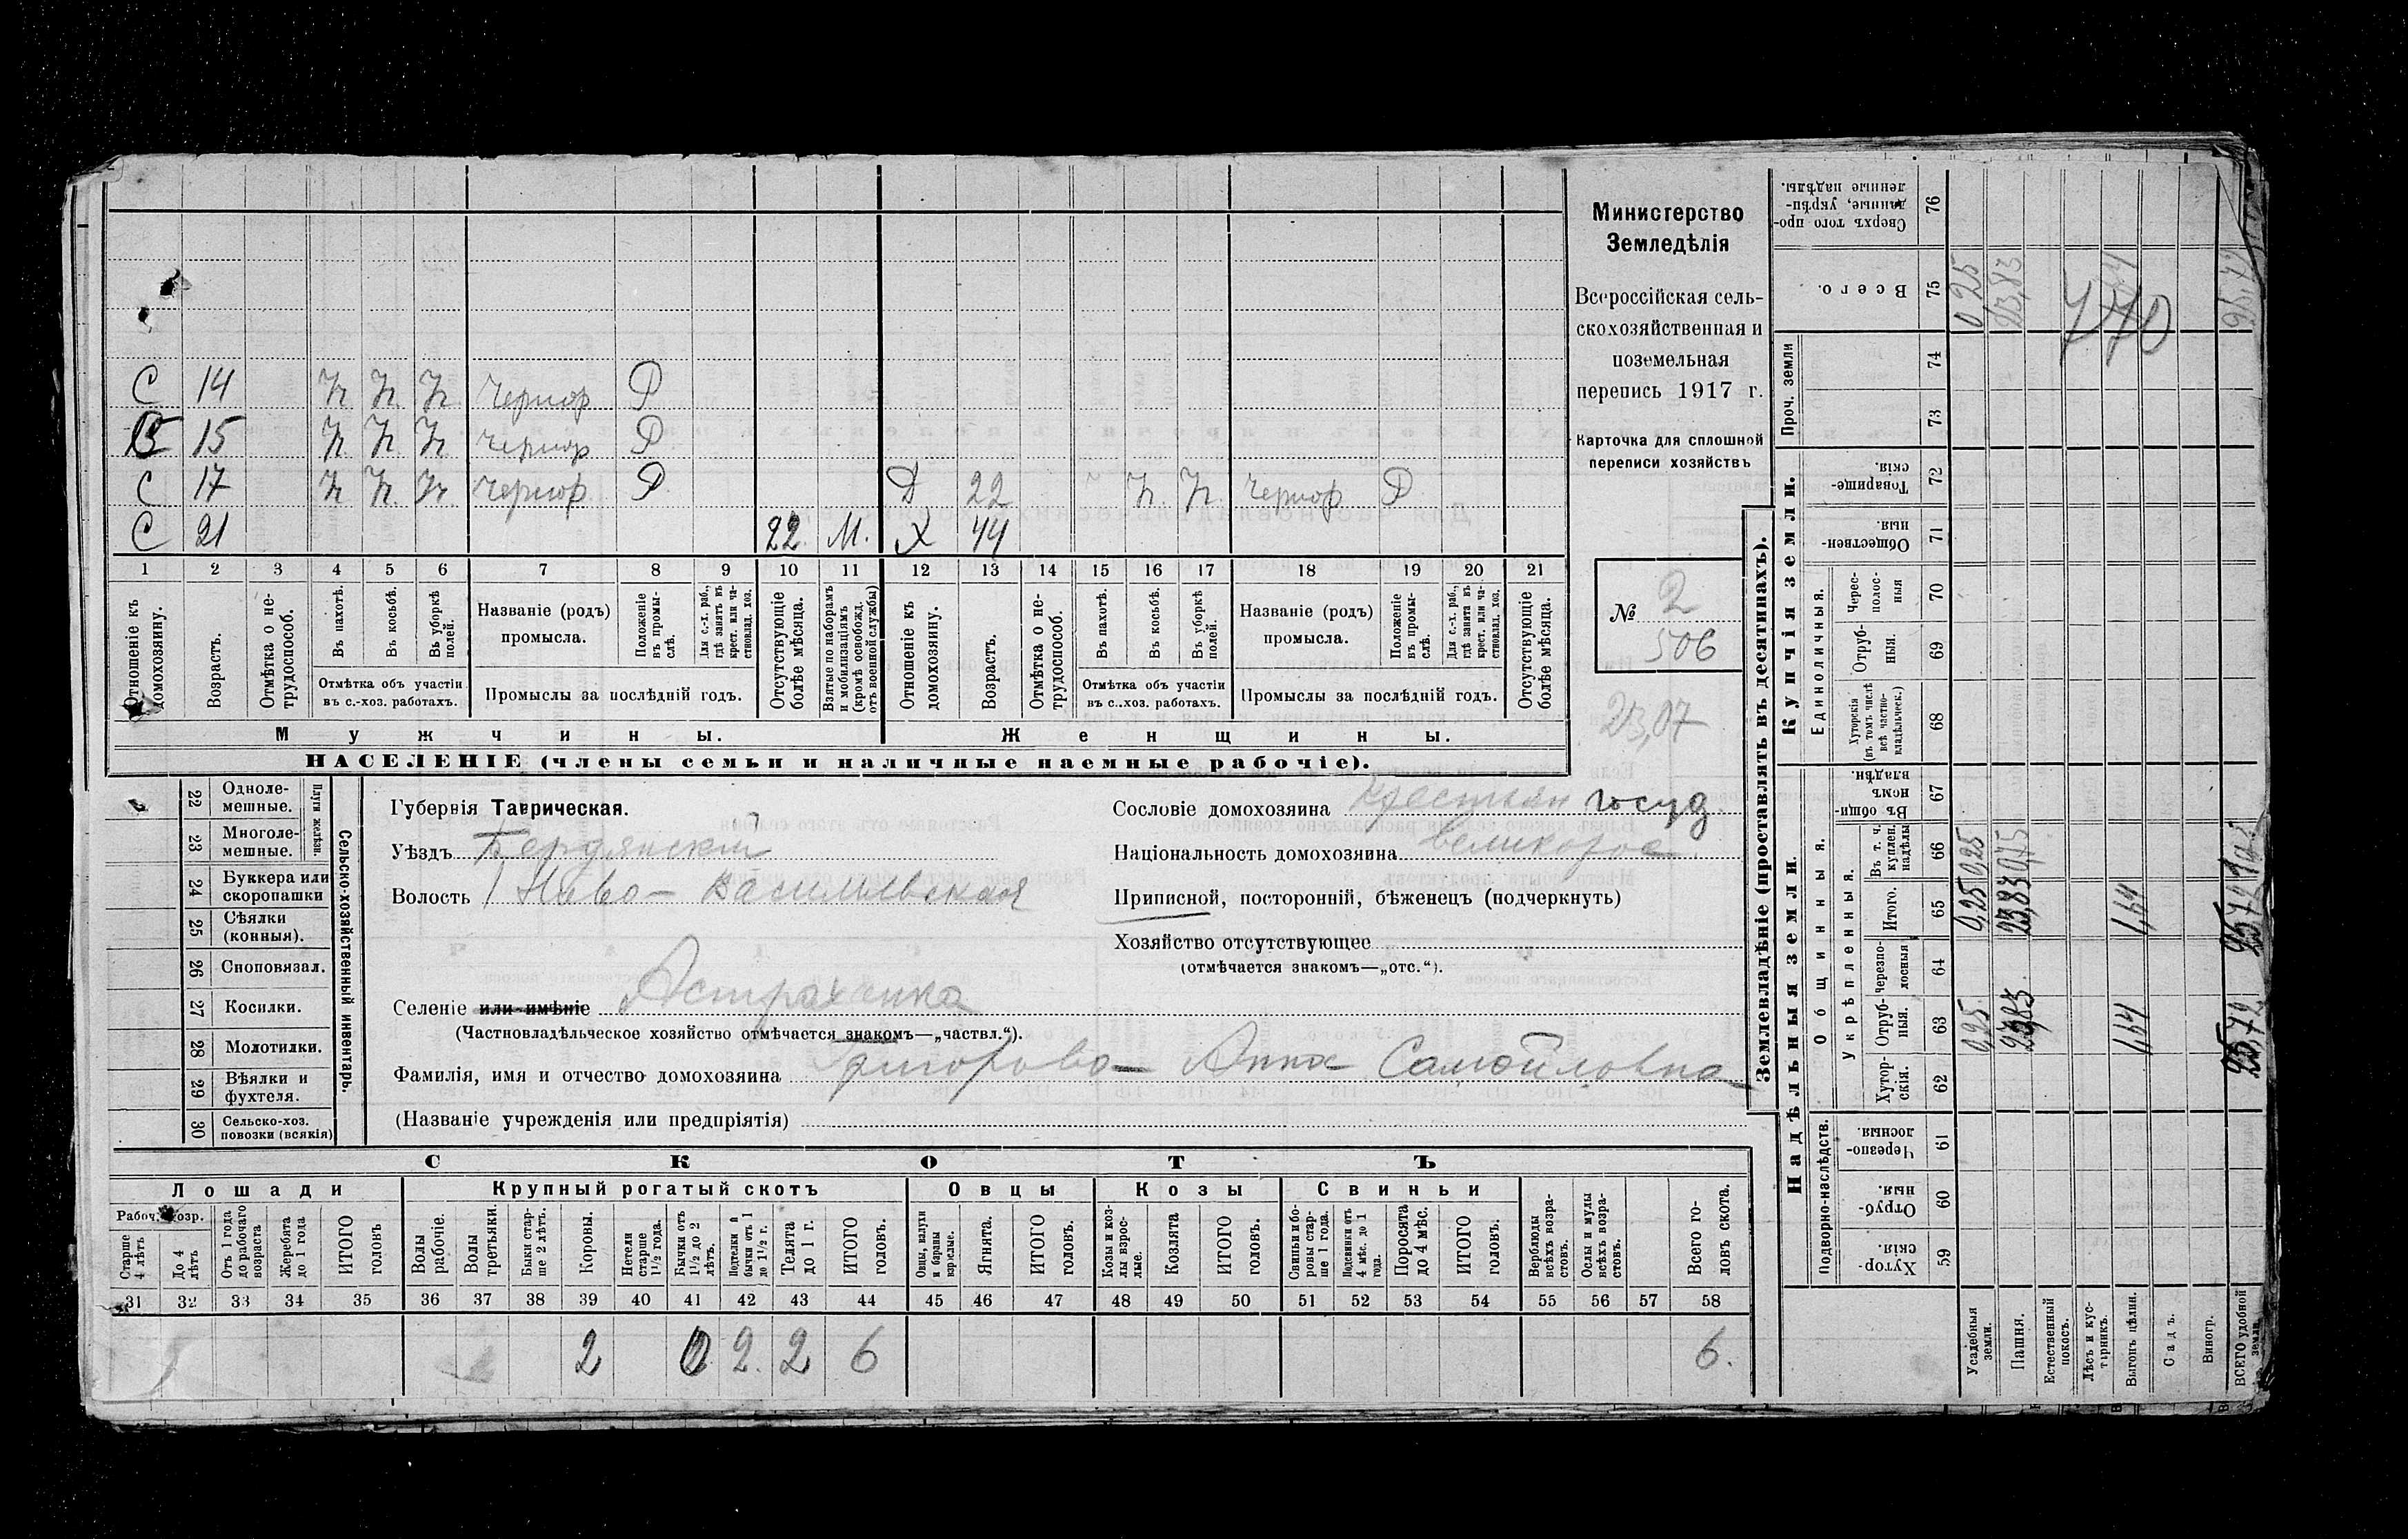 С 14 Ч Ч Ч Чернор Р
С 15 Ч Ч Ч чернор Р
С 17 Ч Ч. Ч. Чернор Р Д 22 Ч. Ч. Чернор Р
С 21 22 М. Х 44
1 2 3 4 5 6 7 8 9 10 11 12 13 14 15 16 17 18 19 20 21
Отношеніе къ домохозяину.
Возрастъ.
Отмѣтка о не-
трудоспособ.
Въ пахотѣ.
Въ косьбѣ.
Въ уборкѣ полей.
Отмѣтка объ участіи
въ с.-хоз. работахъ.
Названіе (родъ)
промысла.
Положеніе въ промы-
слѣ.
Для с.-х. раб., гдѣ занятъ въ крест. или ча-
стновлад. хоз.
Промыслы за послѣдній годъ.
Отсутствующіе болѣе мѣсяца.
Взятые по наборамъ и мобилизаціямъ (кромѣ освобожд. отъ военной службы)
Отношеніе къ домохозяину.
Возрастъ.
Отмѣтка о не-
трудоспособ.
Въ пахотѣ.
Въ косьбѣ.
Въ уборкѣ полей.
Отмѣтка объ участіи
въ с.-хоз. работахъ.
Названіе (родъ)
промысла.
Положеніе въ промы-
слѣ.
Для с.-х. раб., гдѣ занята въ крест. или ча-
стновлад. хоз.
Промыслы за послѣдній годъ.
Отсутствующіе болѣе мѣсяца.
Мужчины. Женщины.
НАСЕЛЕНІЕ (члены семьи и наличные наемные рабочіе).
Министерство
Земледѣлія
Всероссійская сель-
скохозяйственная и
поземельная
перепись 1917 г.
Карточка для сплошной
переписи хозяйствъ
№ 2
506
23,07
22 Однолемешные.
23 Многолемешные.
Плуги желѣзн.
24 Буккера или скоропашки
25 Сѣялки (конныя).
26 Сноповязал.
27 Косилки.
28 Молотилки.
29 Вѣялки и фухтеля.
30 Сельско-хоз. повозки (всякія)
Сельско-хозяйственный инвентарь.
Губернія Таврическая.
Уѣздъ Бердянский
Волость Ново-Васильевская
Селеніе или имѣніе Астраханка
(Частновладѣльческое хозяйство отмѣчается знакомъ—„частвл.“).
Фамилія, имя и отчество домохозяина Григорова Анна Самойловна
(Названіе учрежденія или предпріятія)
Сословіе домохозяина крестьян госуд.
Національность домохозяина великорос
Приписной, посторонній, бѣженецъ (подчеркнуть)
Хозяйство отсутствующее
(отмѣчается знакомъ—„отс.“).
СКОТЪ
Лошади Крупный рогатый скотъ Овцы Козы Свиньи
Рабоч. возр.
Старше 4 лѣтъ
До 4 лѣтъ
Отъ 1 года до рабочаго возраста
Жеребята до 1 года
ИТОГО головъ
Волы рабочіе.
Волы третьяки.
Быки старше 2 лѣтъ.
Коровы.
Нетели старше 1½ года.
Бычки отъ 1½ до 2 лѣтъ.
Подтелки и бычки отъ 1 до 1½ г.
Телята до 1 г.
ИТОГО головъ.
Овцы, валухи и бараны взрослые.
Ягнята.
ИТОГО головъ.
Козы и козлы взрослые.
Козлята
ИТОГО головъ.
Свиньи и боровы старше 1 года.
Подсвинки отъ 4 мѣс. до 1 года.
Поросята до 4 мѣс.
ИТОГО головъ.
Верблюды всѣхъ возрастовъ.
Ослы и мулы всѣхъ возрастовъ.
Всего головъ скота.
31 32 33 34 35 36 37 38 39 40 41 42 43 44 45 46 47 48 49 50 51 52 53 54 55 56 57 58
2 2. 2 6 6.
Землевладѣніе (проставлять въ десятинахъ).
Надѣльныя земли. Купчія земли.
Подворно-наслѣдств.
Общинныя.
Укрѣпленныя.
Единоличныя.
Проч. земли
Хуторскія. 59
Отрубныя. 60
Черезполосныя. 61
Хуторскія. 62
Отрубныя. 63
Черезполосныя 64
Итого. 65
Въ т. ч. куплен. надѣлы 66
Въ общинномъ владѣн. 67
Хуторскія (въ томъ числѣ всѣ частновладѣльческ.) 68
Отрубныя. 69
Чересполосныя 70
Общественныя. 71
Товарищескія. 72
73
74
Всего. 75
Сверхъ того проданные, укрѣпленные надѣлы. 76
Усадебныя земли. 0,25 0,25 0,25 0 25
Пашня. 23,83 0,75 23,83
Естественный покосъ.
Лѣсъ и кустарникъ.
Выгонъ цѣлин. 1,64 1,64
Садъ.
Виногр.
ВСЕГО удобной земли. 25,72 25,72 25,72